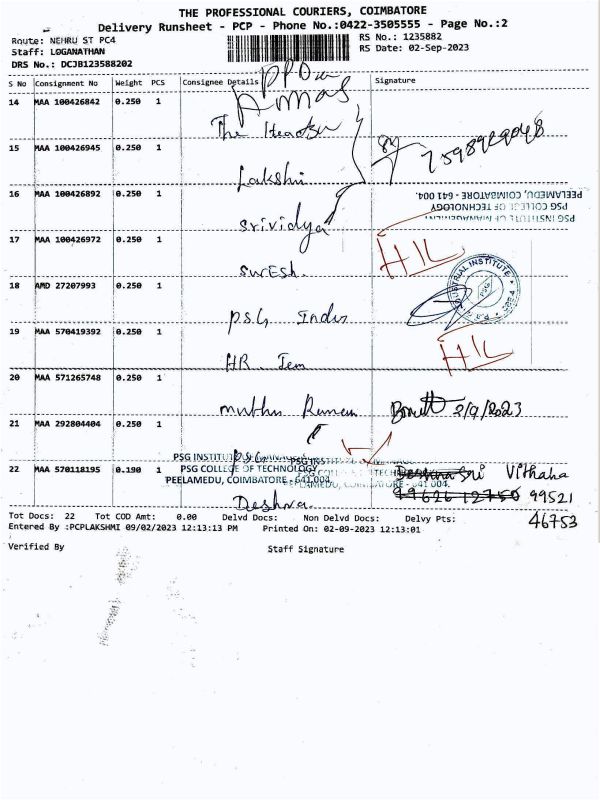 THE PROFESSIONAL COURIERS, COIMBATORE
Delivery Runsheet - PCP - Phone No.:0422-3505555 - Page No.:2
Route: NEHRU ST PC4
RS No.: 1235882
Staff: LOGANATHAN
RS Date: 02-Sep-2023
DRS No.: DCJB123588202
S No Consignment No Weight PCS Consignee Details Signature
14 MAA 100426842 0.250 1
The
15 MAA 100426945 0.250 1
7598929048
Lakshmi
16 MAA 100426892 0.250 1
PSG INSTITUTE OF MANAGEMENT
PSG COLLEGE OF TECHNOLOGY
PEELAMEDU, COIMBATORE - 641 004.
Srividya
17 MAA 100426972 0.250 1
HIL
Suresh.
18 AMD 27207993 0.250 1
INDUSTRIAL INSTITUTE
PSG
P.S.G Indus
19 MAA 570419392 0.250 1
HIL
HR Tem
20 MAA 571265748 0.250 1
muthu Raman
2/9/2023
21 MAA 292804404 0.250 1
22 MAA 570118195 0.190 1
PSG COLLEGE OF TECHNOLOGY
PEELAMEDU, COIMBATORE - 641 004.
Sri Vithaha
99521
46753
Deshna.
Tot Docs: 22 Tot COD Amt: 0.00 Delvd Docs: Non Delvd Docs: Delvy Pts:
Entered By :PCPLAKSHMI 09/02/2023 12:13:13 PM Printed On: 02-09-2023 12:13:01
Verified By Staff Signature